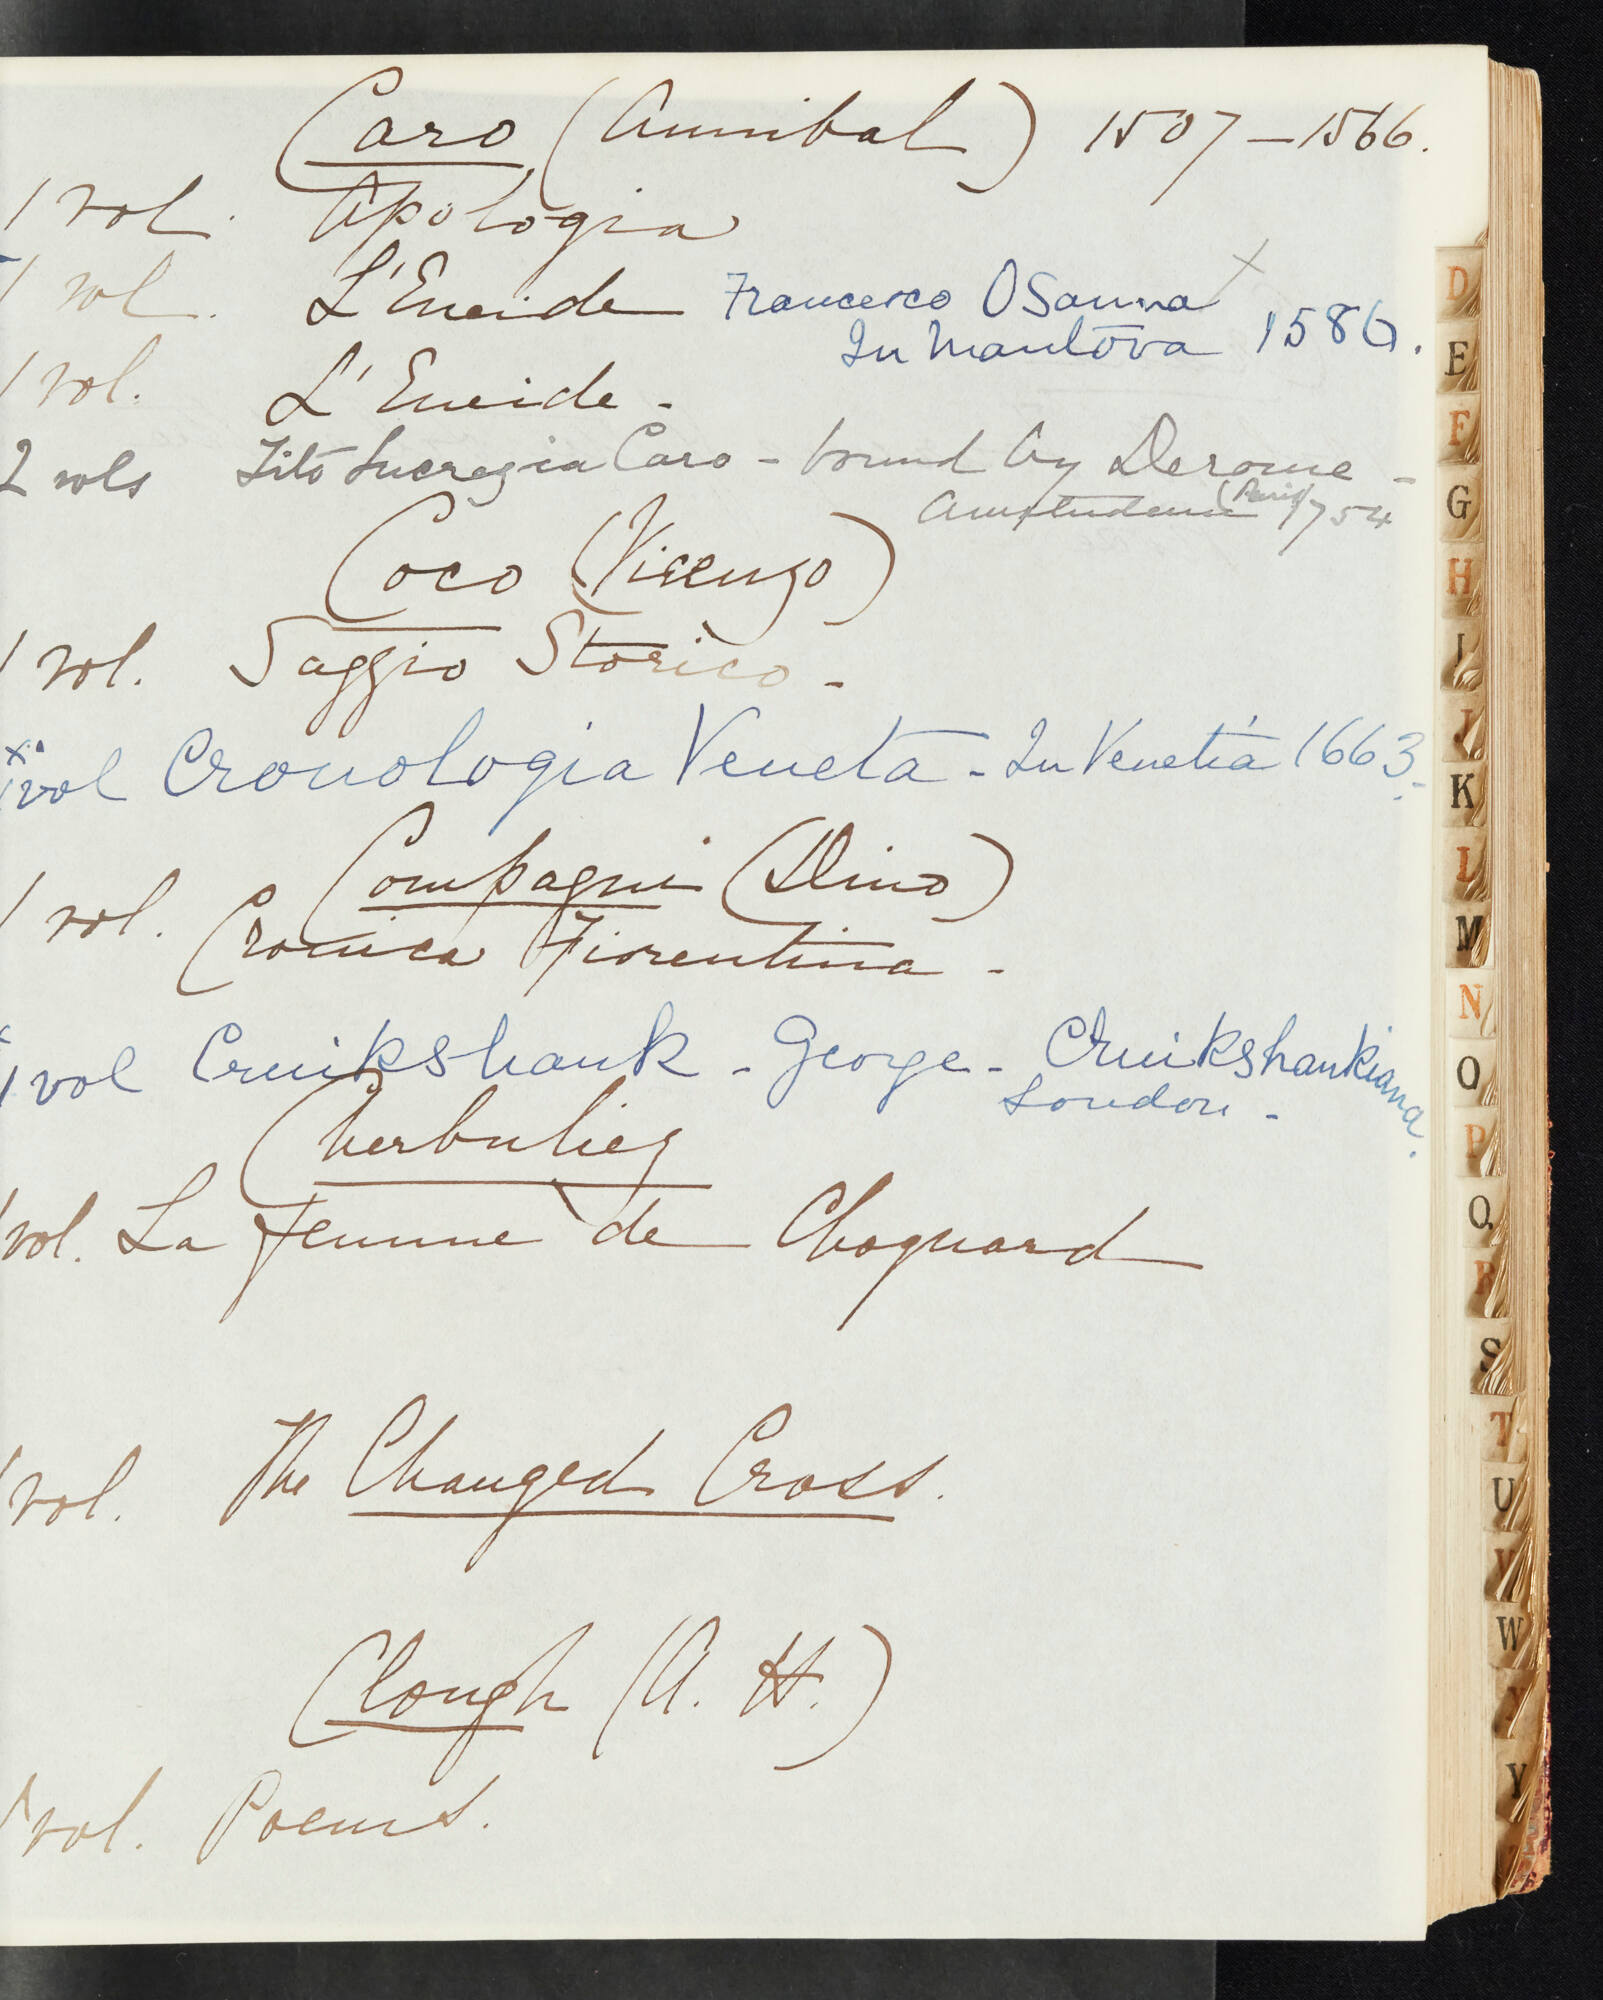 Caro (Annibal) 1507–1566.
1 vol. Apologia
1 vol. L'Eneide Francesco Osanna x
In Mantova 1586.
1 vol. L'Eneide -
2 vols Tito Lucrezia Caro - bound by Derome -
Amsterdam (Paris) 1754
Coco (Vicenzo)
1 vol. Saggio Storico -
x 1 vol Cronologia Veneta - In Venetia 1663.
Compagni (Dino)
1 vol. Cronica Fiorentina -
x
1 vol Cruikshank - George - Cruikshankiana.
London -
Cherbuliez
1 vol. La femme de Choquard
1 vol. The Changed Cross.
Clough (A. H.)
1 vol. Poems.
D
E
F
G
H
I
J
K
L
M
N
O
P
Q
R
S
T
U
V
W
X
Y